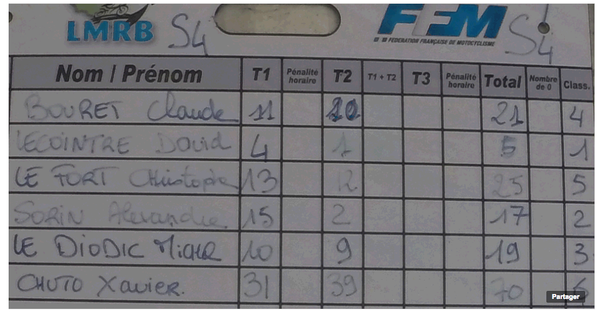 LMRB S4 FFM S4
FÉDÉRATION FRANÇAISE DE MOTOCYCLISME
Nom / Prénom T1 Pénalité horaire T2 T1 + T2 T3 Pénalité horaire Total Nombre de 0 Class.
BOURET Claude 11 10 21 4
LECOINTRE David 4 1 5 1
LE FORT Christophe 13 12 25 5
SORIN Alexandre 15 2 17 2
LE DIODIC 10 9 19 3
CHUTO Xavier. 31 39 70
Partager